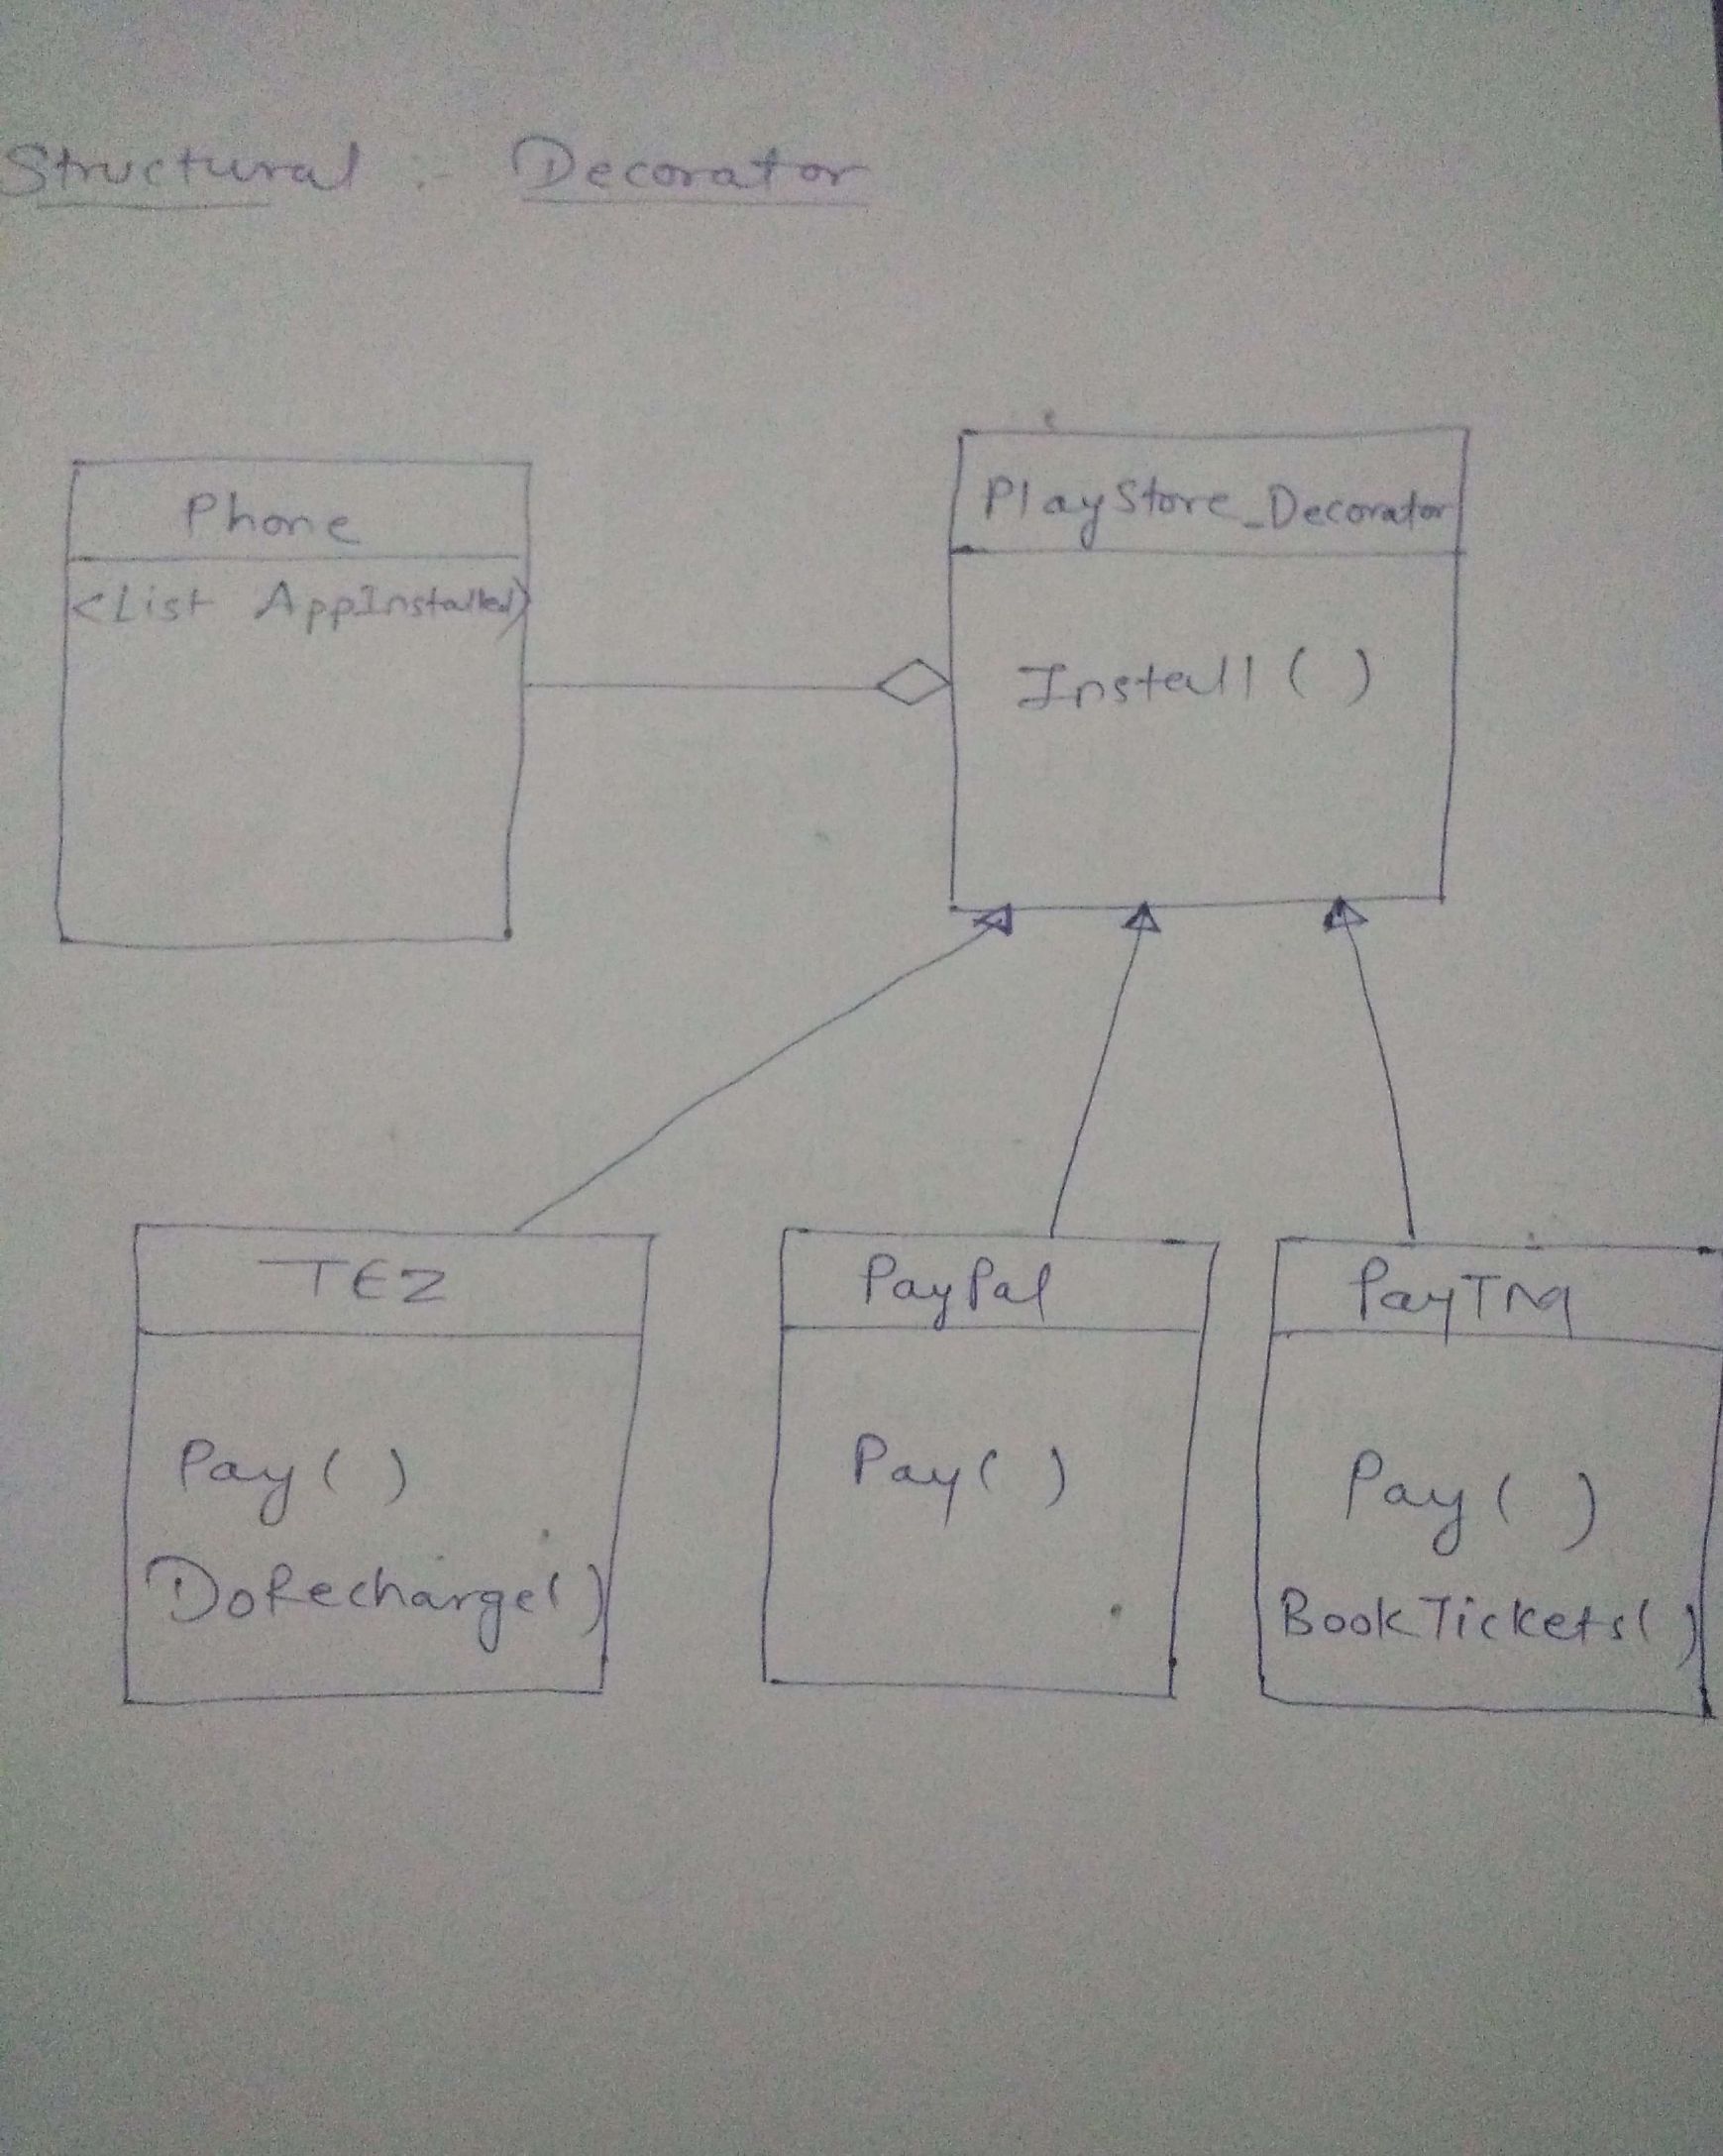 Structural :- Decorator
Phone
<List AppInstalled>
PlayStore_Decorator
Install ( )
TEZ
Pay ( )
DoRecharge( )
PayPal
Pay( )
PayTM
Pay ( )
BookTickets( )